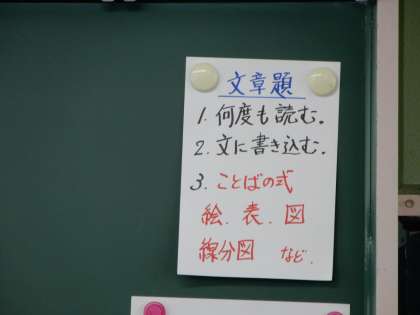 文章題
1. 何度も読む。
2. 文に書き込む。
3. ことばの式
絵、表、図
線分図 など.